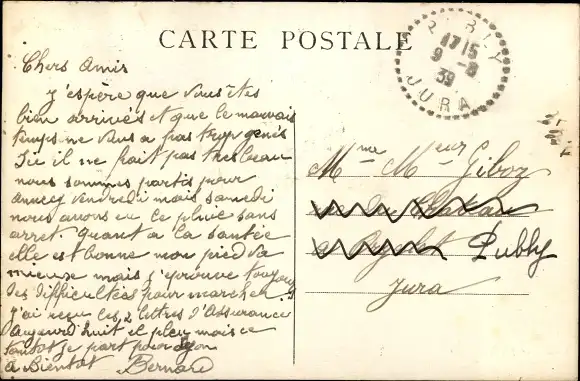 CARTE POSTALE
PUBLY
17 15
9 - 8
39
JURA
Chers Amis
J'espère que vous êtes
bien arrivés et que le mauvais
temps ne vous a pas trop genés
Ici il ne fait pas tres beau
nous sommes partis pour
annecy vendredi mais samedi
nous avons eu la pluie sans
arret. Quant a la santée
elle est bonne mon pied va
mieuse mais j'éprouve toujours
des difficultées pour marcher
J'ai reçu les 2 lettres d'Assurance
Aujourd'huit il pleu mais ce
tantot je part pour
a Bientot Bernard
Mme Meur Giboz
Publy
Jura